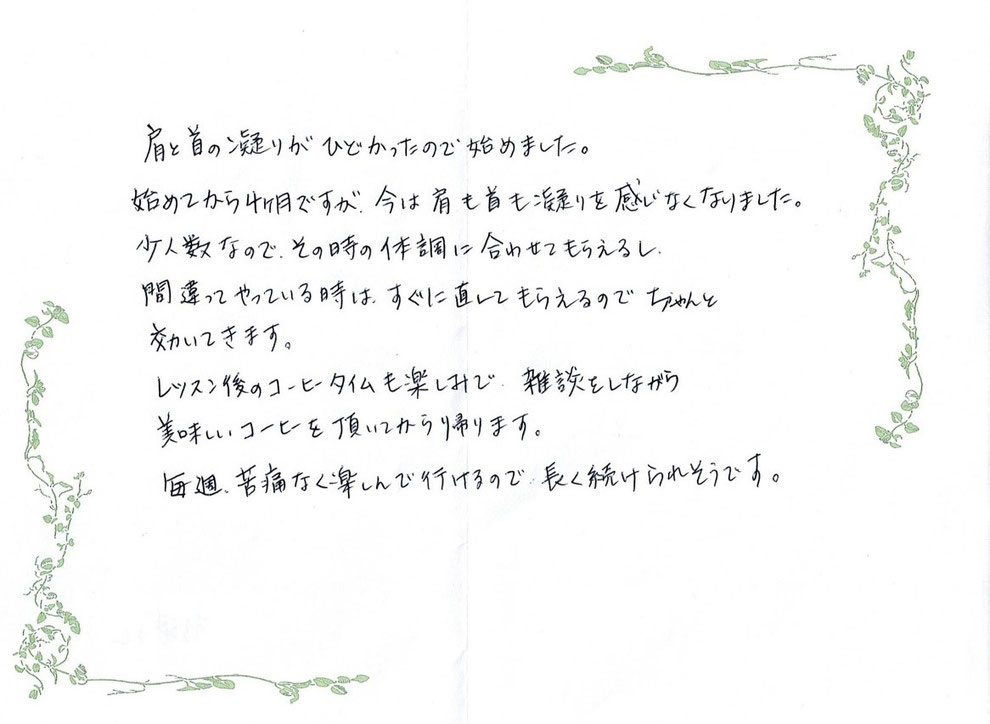 肩と首の凝りがひどかったので始めました。
始めてから4ヶ月ですが、今は肩も首も凝りを感じなくなりました。
少人数なので、その時の体調に合わせてもらえるし、
間違ってやっている時は、すぐに直してもらえるので ちゃんと
効いてきます。
レッスン後のコーヒータイムも楽しみで、雑談をしながら
美味しいコーヒーを頂いてから帰ります。
毎週、苦痛なく楽しんで行けるので、長く続けられそうです。